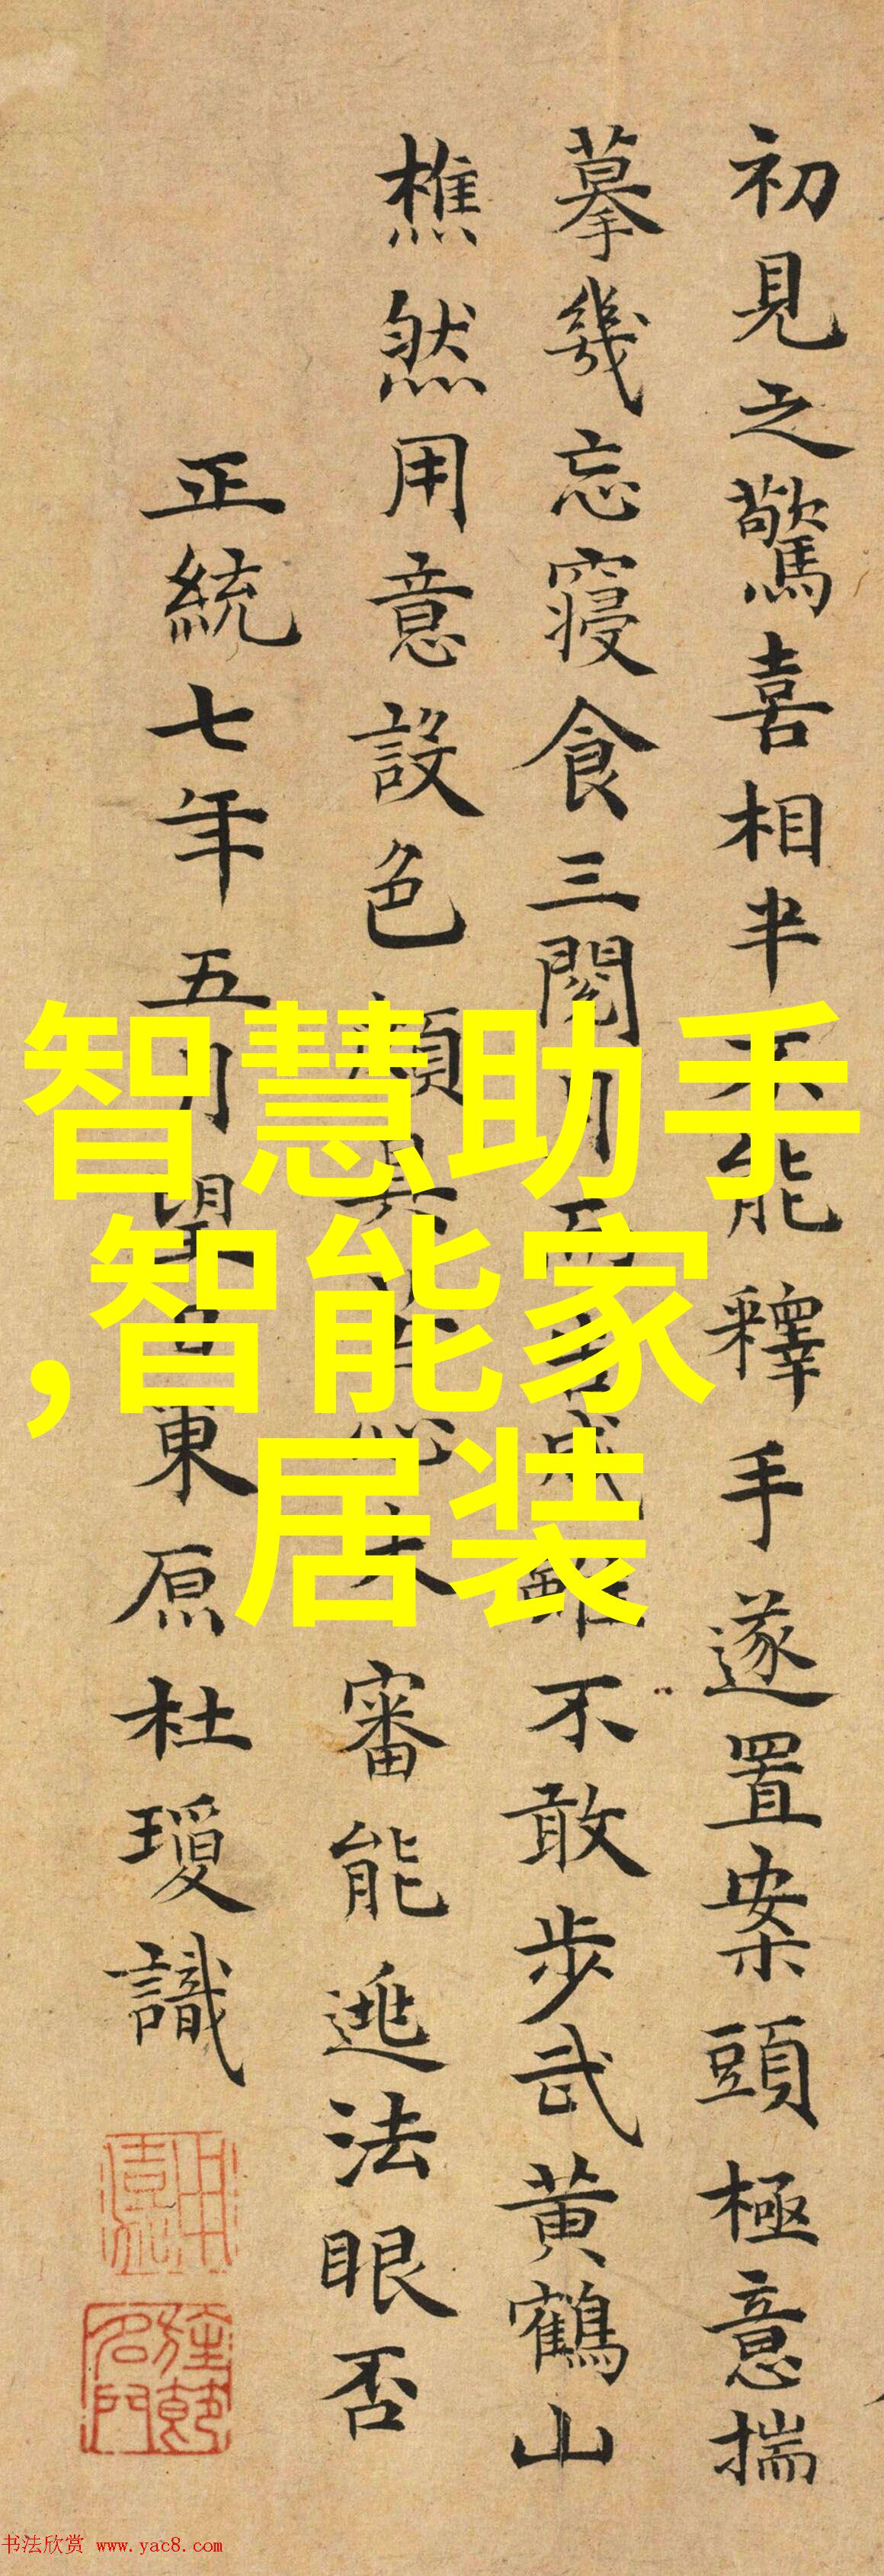 初見之驚喜相半不能釋手遂置案頭極意揣
摹幾忘寢食三閱月而成雖不敢步武黃鶴山
樵然用意設色頗具心未審能逃法眼否
正統七年五月望日東原杜瓊識
智慧助手
,智能家
居装
书法欣赏 www.yac8.com